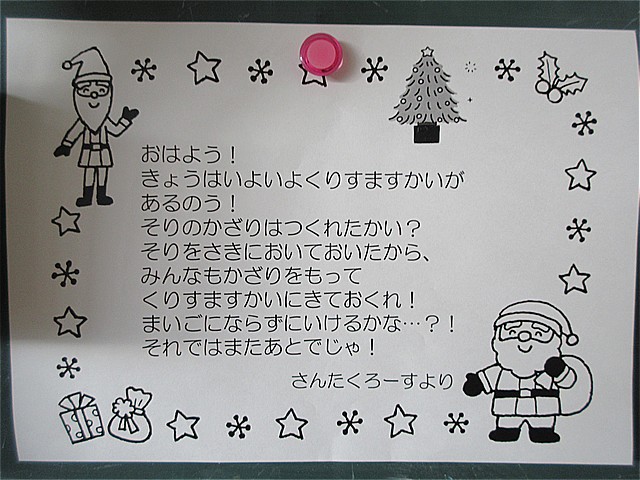 おはよう！
きょうはいよいよくりすますかいが
あるのう！
そりのかざりはつくれたかい？
そりをさきにおいておいたから、
みんなもかざりをもって
くりすますかいにきておくれ！
まいごにならずにいけるかな…？！
それではまたあとでじゃ！
さんたくろーすより